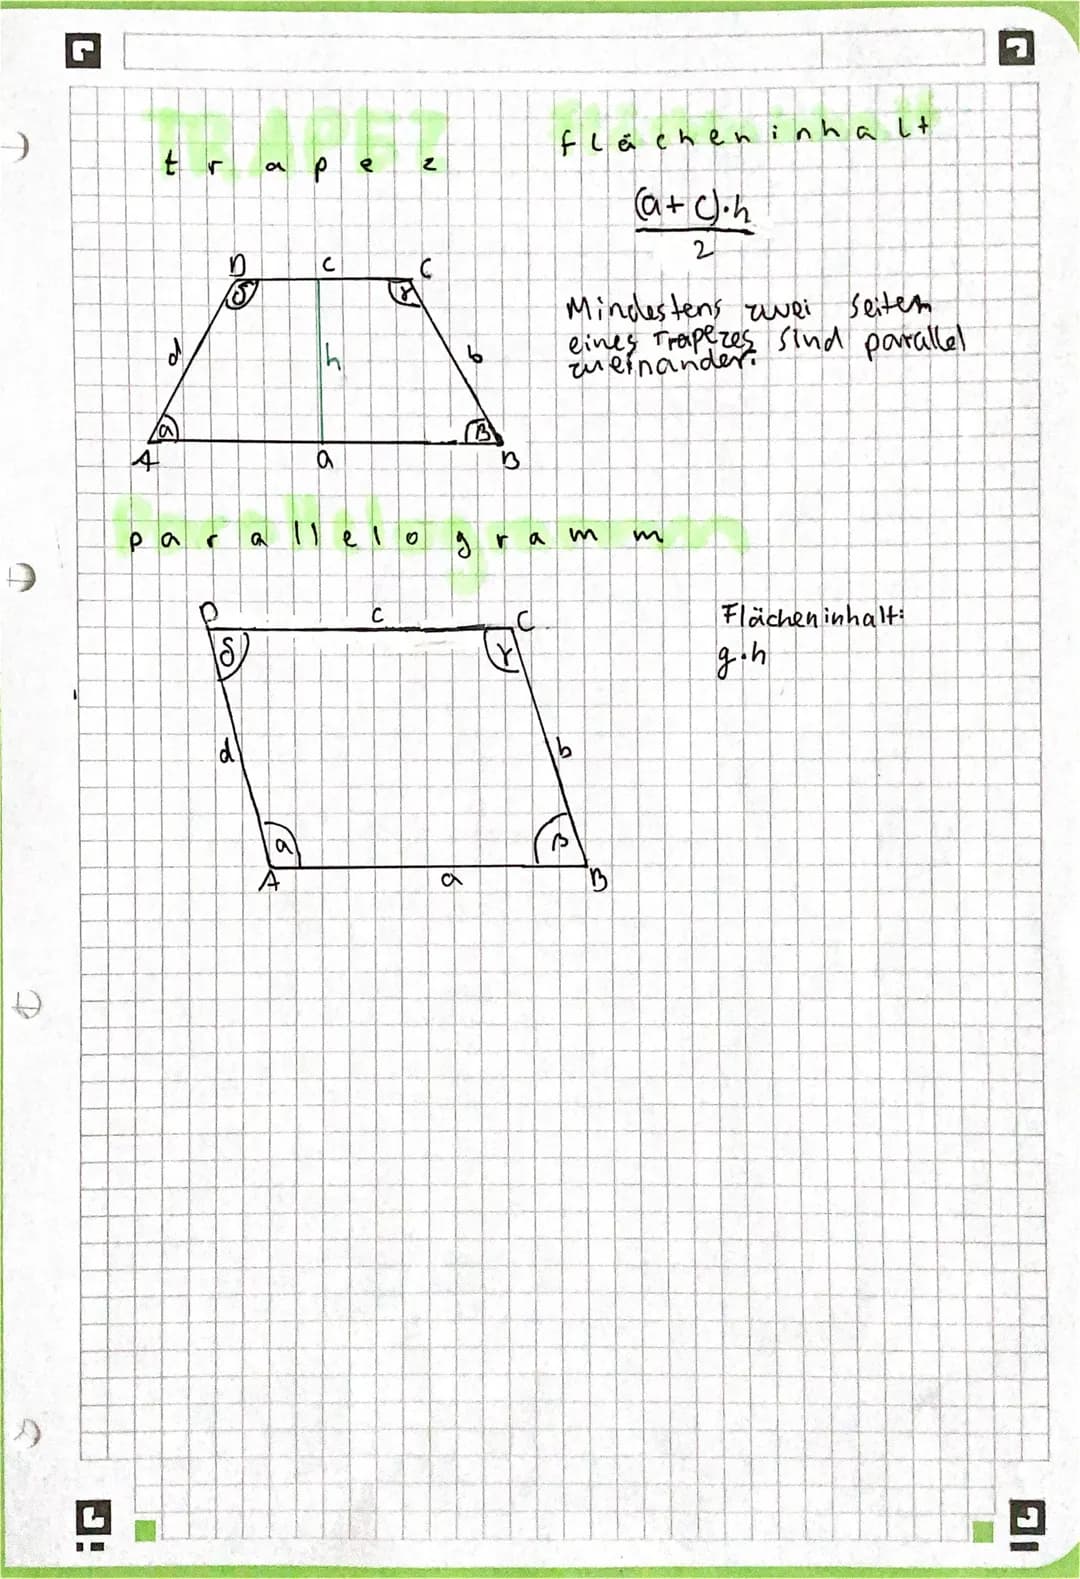 TRAPEZ
trapez
Flächeninhalt
flächeninhalt
(a+c)·h
2
Mindestens zwei Seiten
eines Trapezes sind parallel
zueinander.
D c C
δ γ
d h b
α β
A a B
Parallelogramm
parallelogramm
D c C
δ γ
d b
α β
A a B
Flächeninhalt:
g·h